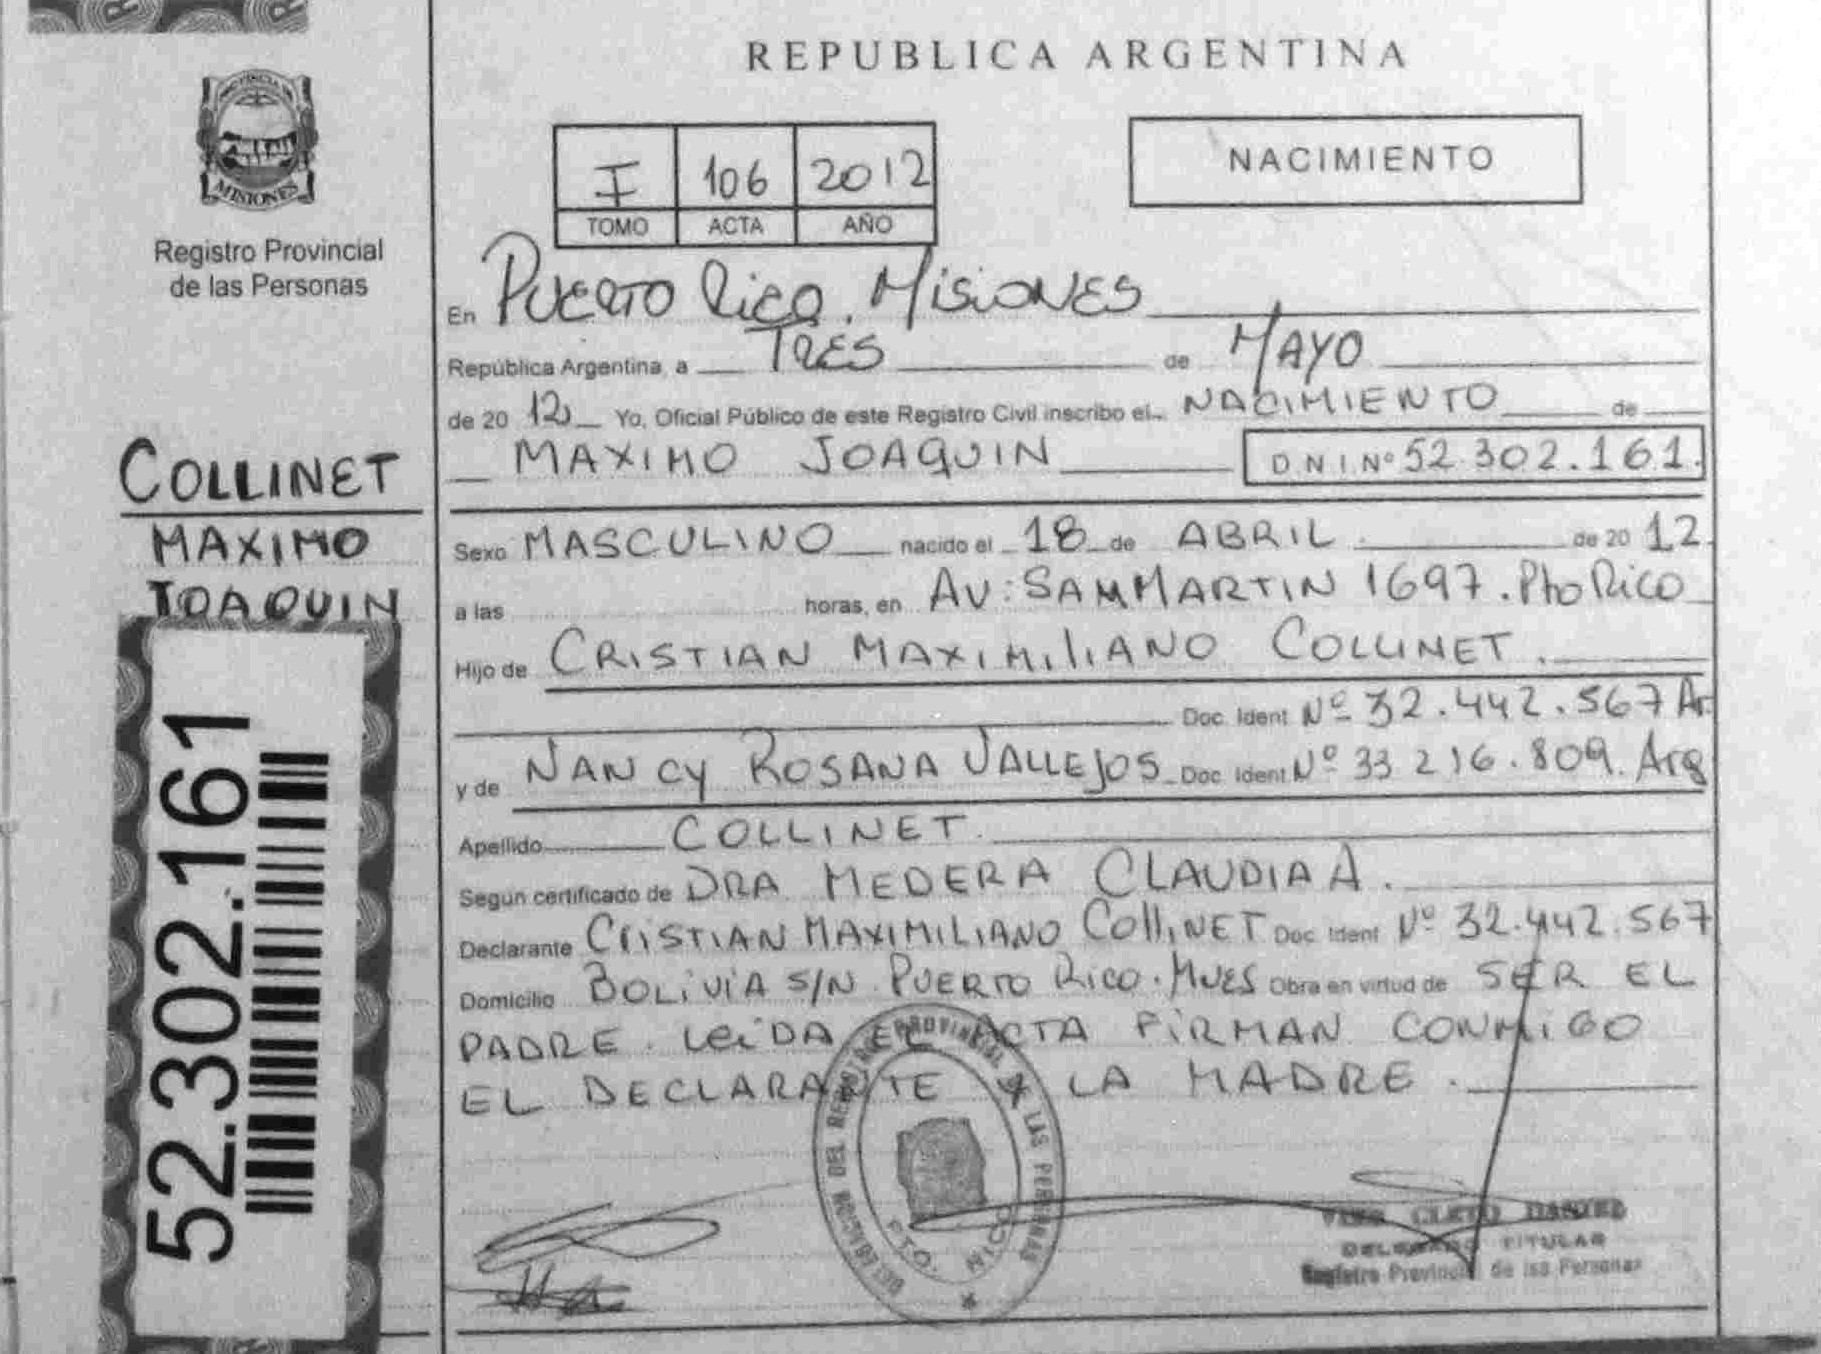 REPUBLICA ARGENTINA
PROVINCIA DE
MISIONES
Registro Provincial
de las Personas
I 106 2012
TOMO ACTA AÑO
NACIMIENTO
En Puerto Rico. Misiones
República Argentina, a TRES de MAYO
de 20 12 Yo, Oficial Público de este Registro Civil inscribo el NACIMIENTO de
MAXIMO JOAQUIN D.N.I. Nº 52.302.161.
COLLINET
MAXIMO
JOAQUIN
52.302.161
Sexo MASCULINO nacido el 18 de ABRIL de 20 12
a las horas, en AV: SAMMARTIN 1697. Pto Rico
Hijo de CRISTIAN MAXIMILIANO COLLINET.
Doc. Ident Nº 32.442.567 Ar.
y de NANCY ROSANA VALLEJOS Doc. Ident Nº 33 216.809. Arg
Apellido COLLINET.
Según certificado de DRA MEDERA CLAUDIA A.
Declarante CRISTIAN MAXIMILIANO COLLINET Doc. Ident Nº 32.442.567
Domicilio BOLIVIA S/N. PUERTO RICO. MNES Obra en virtud de SER EL
PADRE. LEIDA EL ACTA FIRMAN CONMIGO
EL DECLARANTE Y LA MADRE.
DELEGACION DEL REGISTRO PROVINCIAL DE LAS PERSONAS
PTO. RICO
CLETO DANIEL
DELEGADO TITULAR
Registro Provincial de las Personas